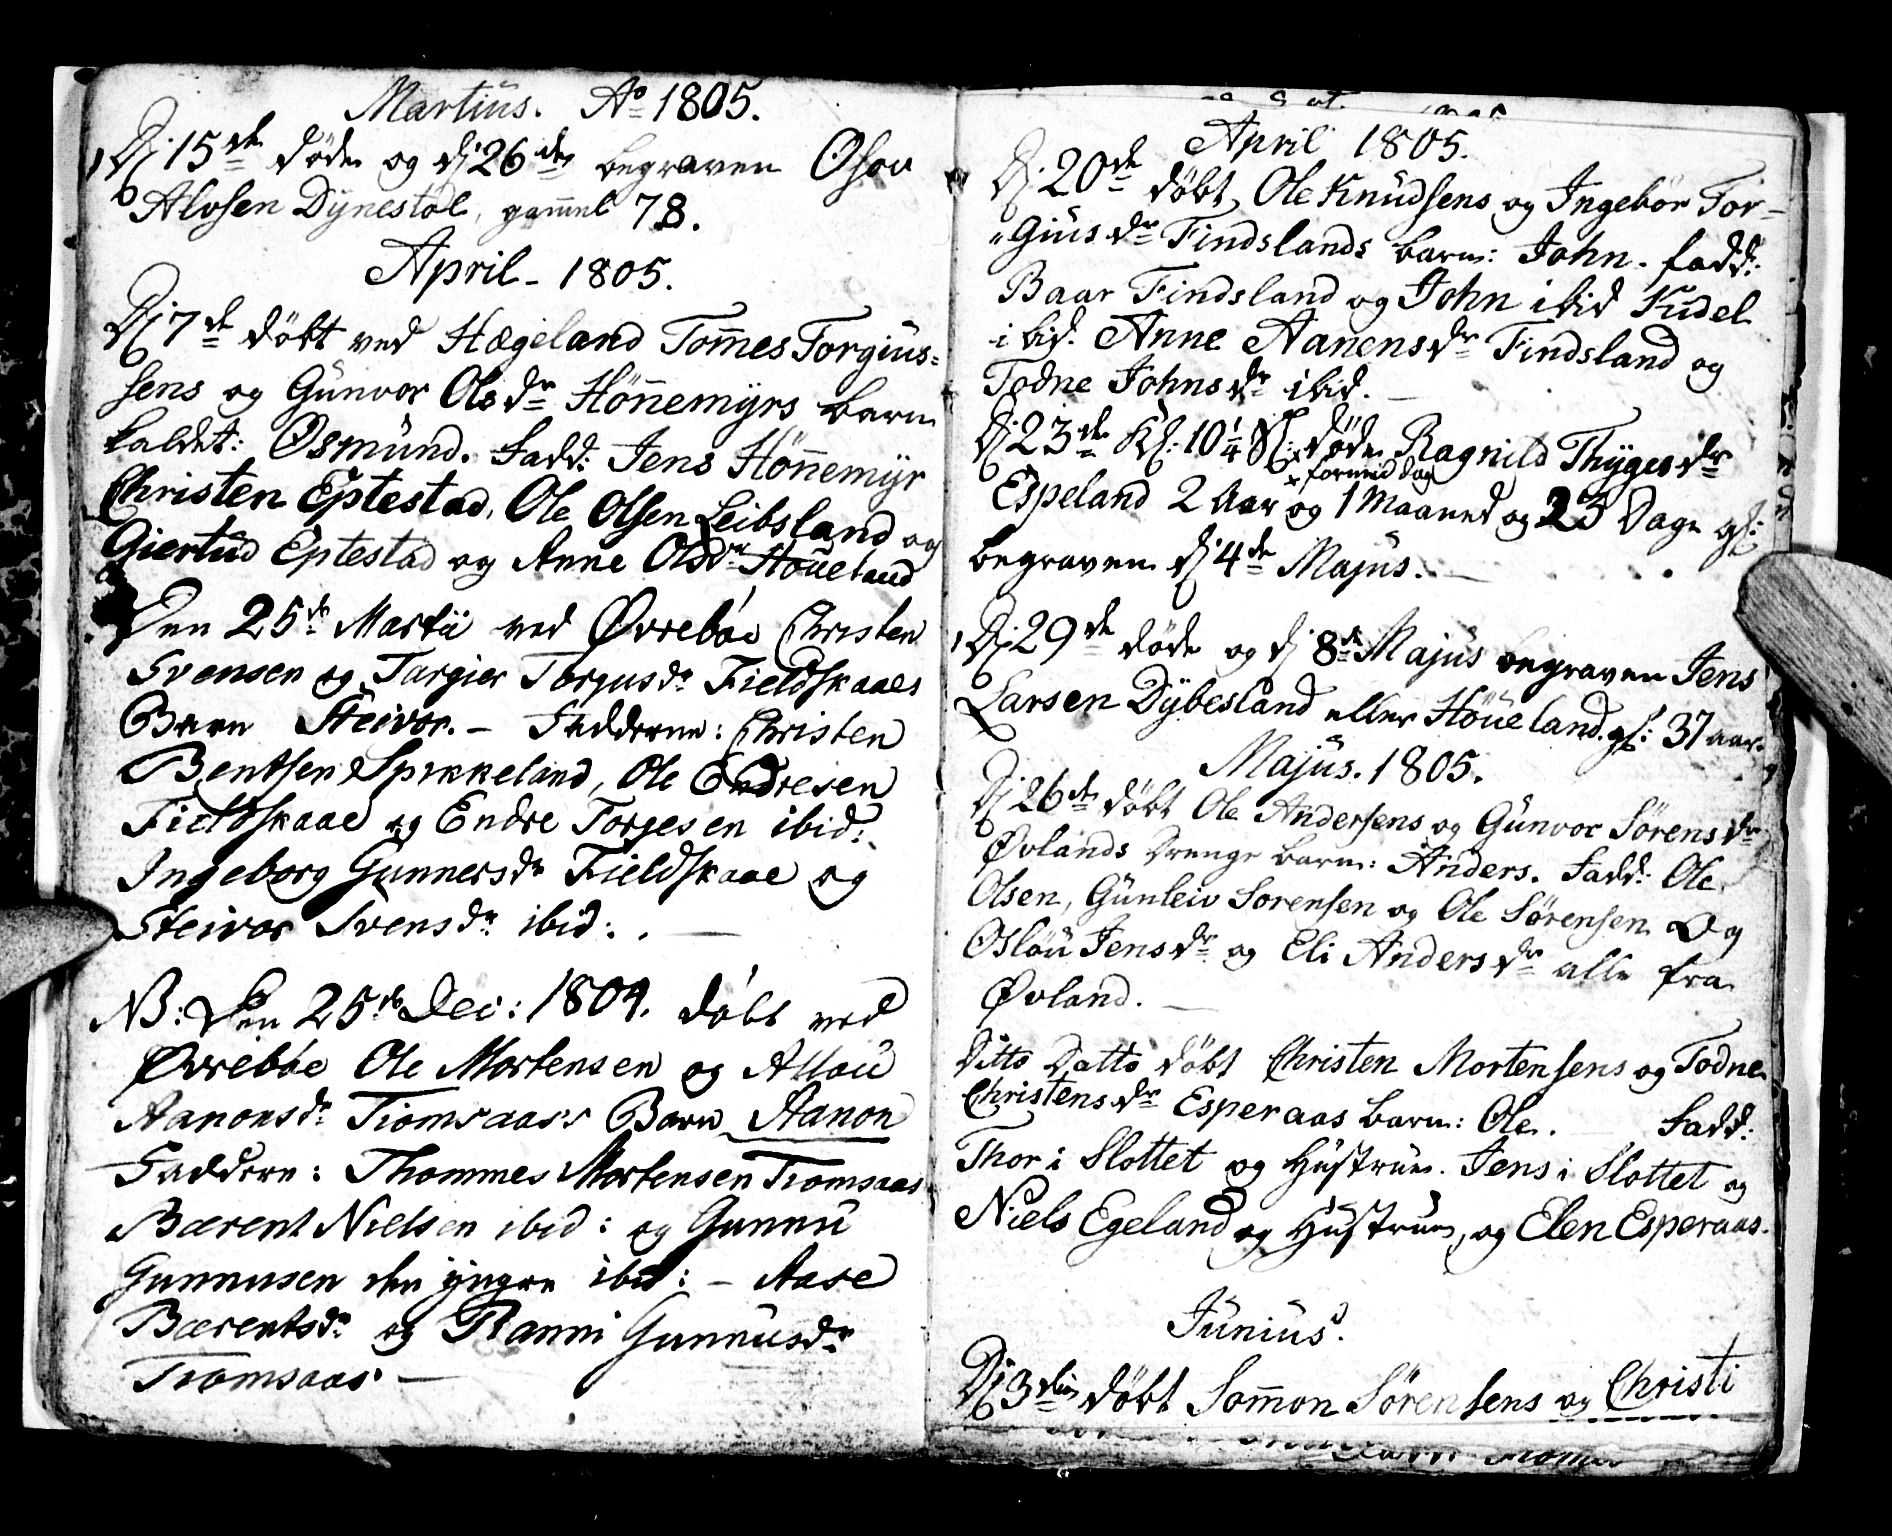 Martius. Ao 1805.
Dj 15de døde og dj 26de begraven Osou
Alvsen Dynestøl, gam̄el 78.
April - 1805.
Dj 7de døbt ved Hægeland Tom̄es Torgius-
sens og Gunvor Olsdr Høn̄emyrs barn
kaldet: Osmund. Fadd: Jens Høn̄emyr
Christen Eptestad, Ole Olsen Leibsland og
Giertud Eptestad og Anne Olsdr Houeland
Den 25de Martii ved Øvrebøe Christen
Svensen og Targier Torgusdr Fieldskaaes
Barn Steivor. - Fadderne: Christen
Bentsen Spikkeland, Ole Endresen
Fieldskaae og Endre Torgesen ibid:
Ingeborg Gunnersdr Fieldskaae og
Steivor Svensdr ibid:. -
NB: Den 25de Dec: 1804. døbt ved
Øvrebøe Ole Mortensen og Allou
Aanonsdr Tromsaass Barn Aanon
Faddere: Thommes Mortensen Tromsaas
Bærent Nielsen ibid: og Gunnu
Gunnusen den yngre ibid: - Aase
Bærentsdr og Ranni Gunnusdr
Tromsaas -
April 1805.
Dj 20de døbt Ole Knudsens og Ingebor Tor-
"giusdr Findslands barn: John. fadd:
Baar Findsland og John ibid Kudel
ibid. Anne Aanensdr Findsland og
Todne Johnsdr ibid. -
Dj 23de Kl: 10 1/4 Sl: x døde Ragnild Thygesdr
x formiddag
Espeland 2 Aar og 1 Maaned og 23 Dage gl:
begraven dj 4de Majus. -
Dj 29de døde og dj 8de Majus begraven Jens
Larsen Dybesland eller Høueland. gl: 37 aar.
Majus. 1805.
Dj 26de døbt Ole Andersens og Gunvor Sørensdr
Øvlands Drenge barn: Anders. Fadd: Ole
Olsen, Gunleiv Sorensen og Ole Sørensen Og
Oslou Jensdr og Eli Andersdr alle fra
Øvland. -
Ditto Datto døbt Christen Mortensens og Todne
Christensdr Esperaas barn: Ole. Fadd:
Thor i Slottet og Hustrue. Jens i Slottet og
Niels Egeland og Hustrue, og Elen Esperaas.
Junius.
Dj 3die døbt Som̄on Sørensens og Christi